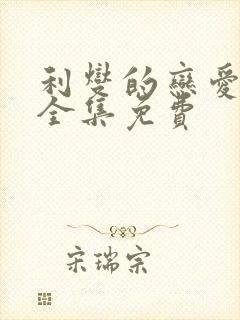 利燮的戀愛
全集免費
宋瑞宗